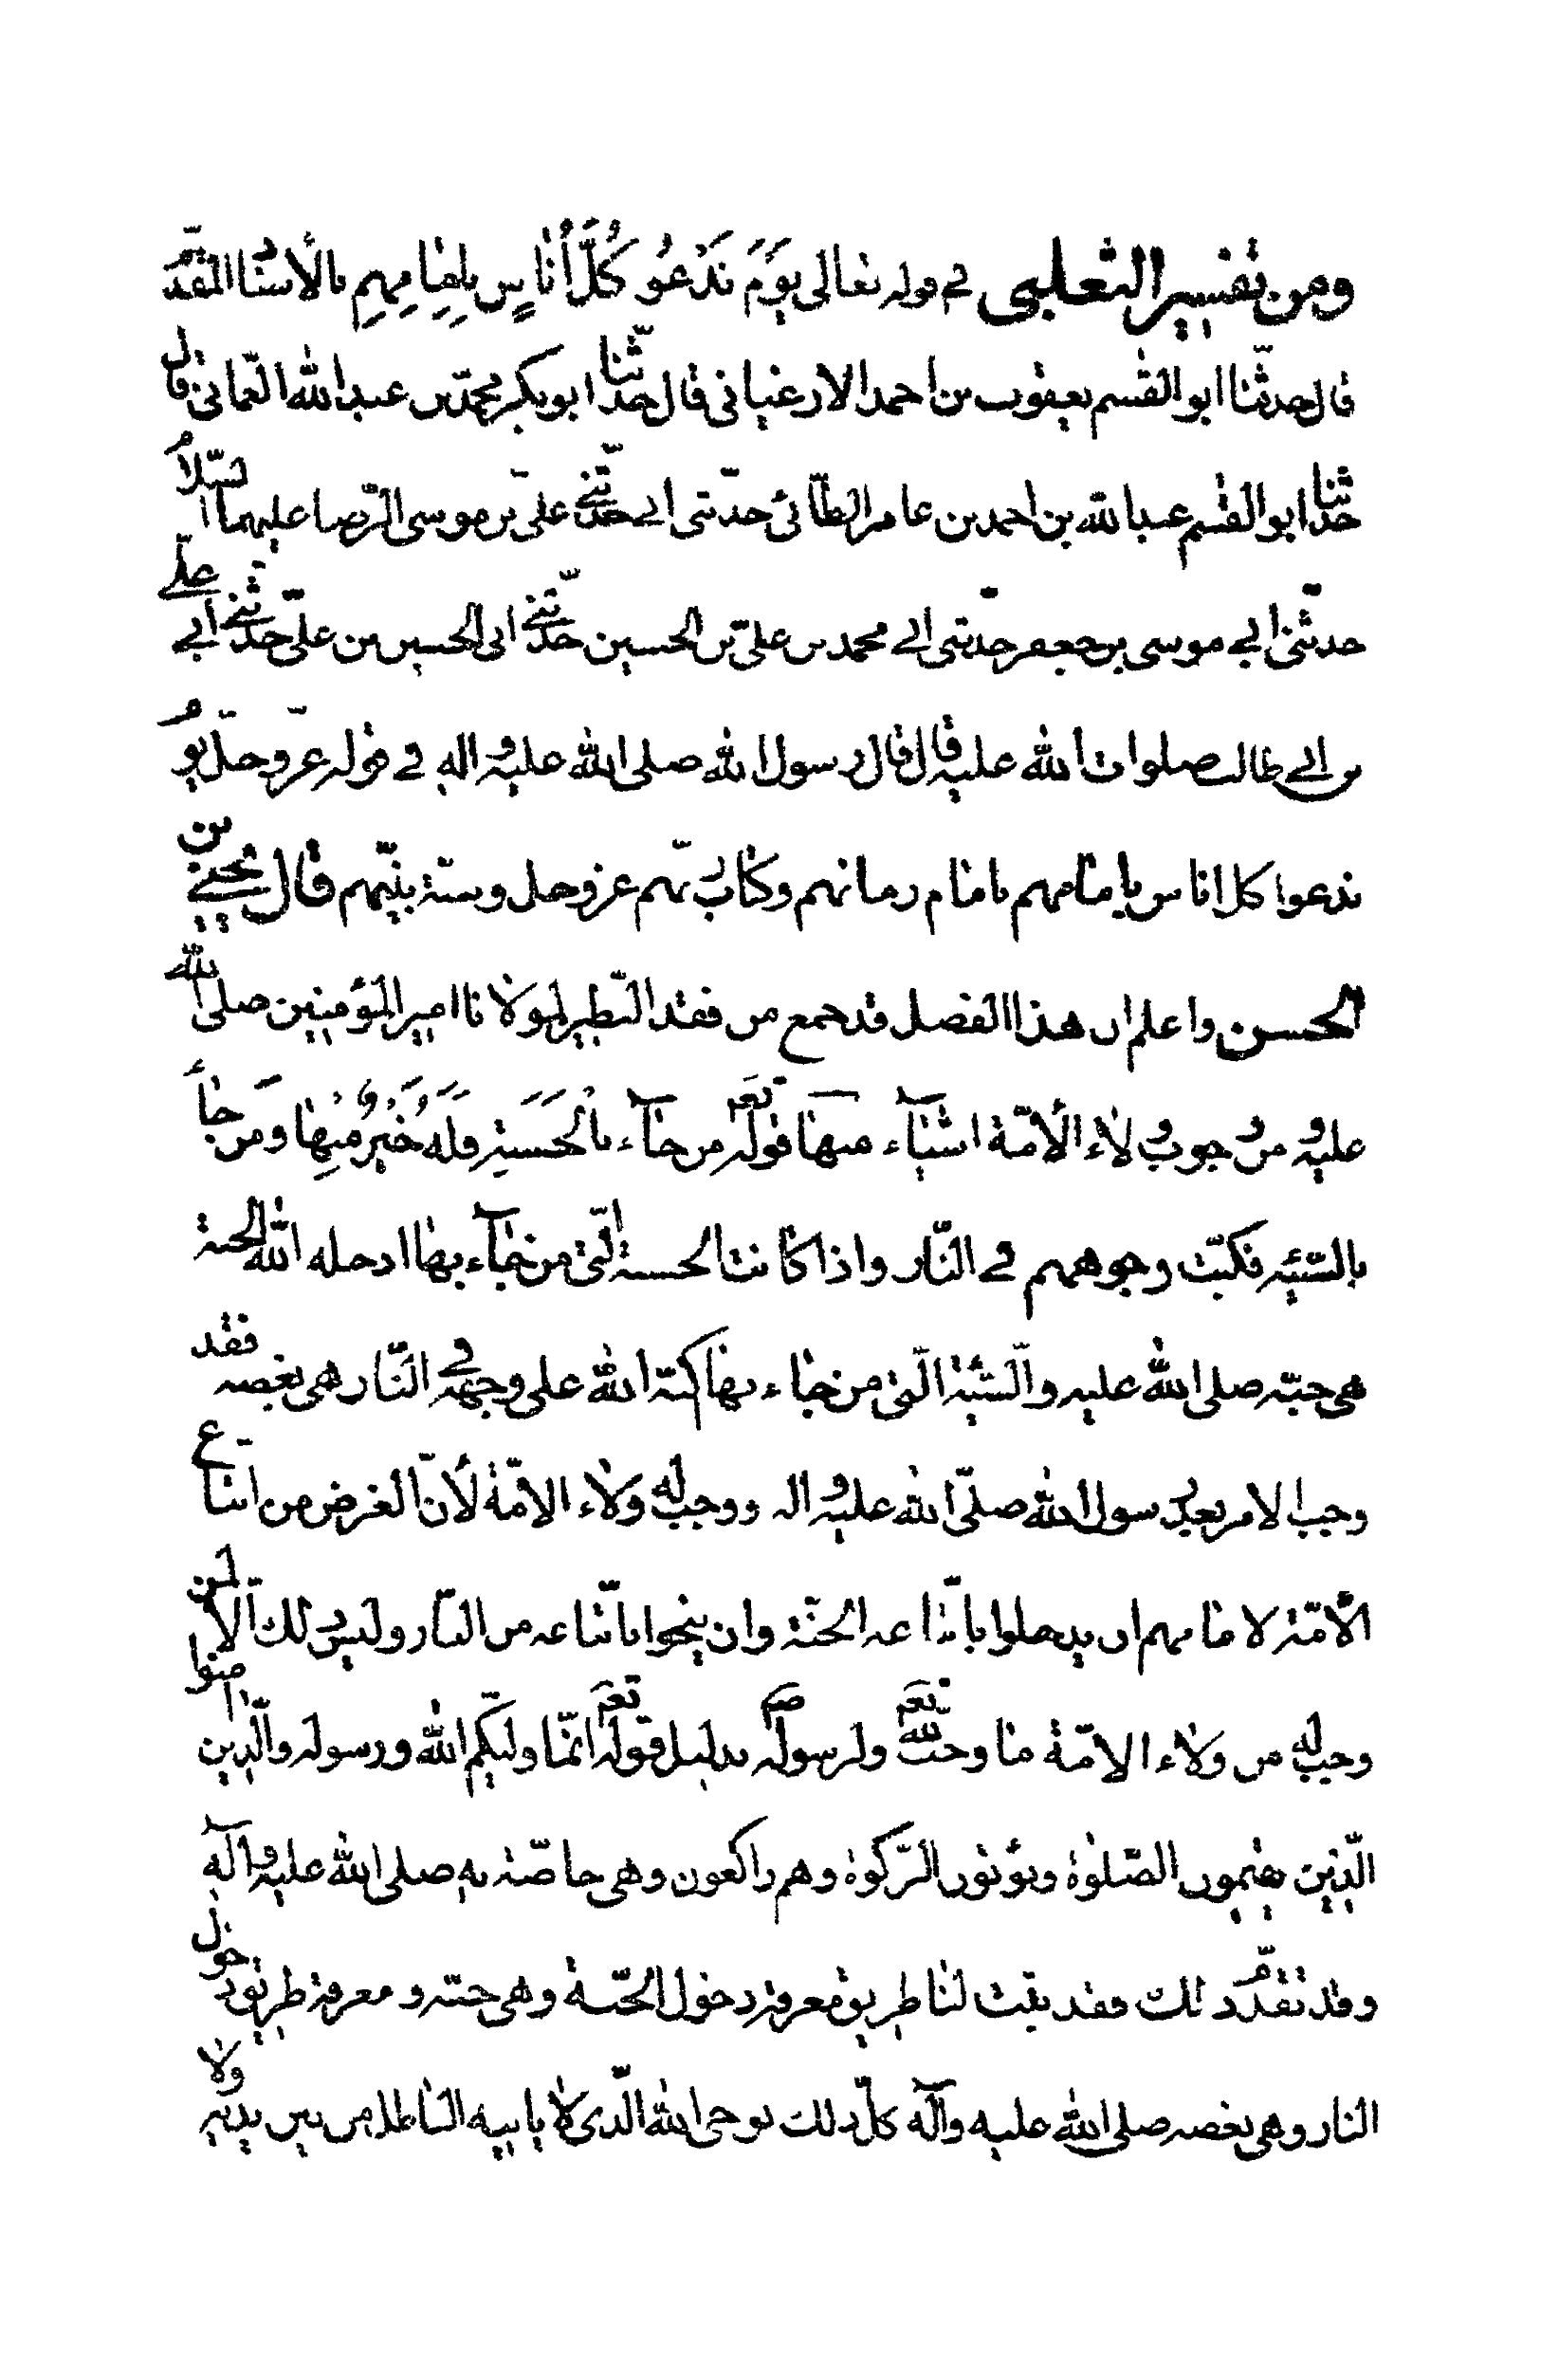 ومن تفسير الثعلبي في قوله تعالى يَوْمَ نَدْعُو كُلَّ أُنَاسٍ بِإِمَامِهِم بالأسناد المقدّم
قال حدثنا ابو القسم يعقوب بن احمد الارغياني قال حدّثنا ابو بكر محمّد بن عبد الله العمانى قال
حدّثنا ابو القسم عبد الله بن احمد بن عامر الطّائى حدّثنى ابى حدّثنى علىّ بن موسى الرّضا عليهما السّلام
حدثنى ابى موسى بن جعفر حدّثنى ابى محمد بن علىّ بن الحسين حدّثنى ابى الحسين بن علىّ حدّثنى ابى علىّ
بن ابى طالب صلوات الله عليه قال قال رسول الله صلى الله عليه واله في قوله عزّ وجلّ يوم
ندعوا كل اناس بامامهم بامام زمانهم وكتاب ربّهم عز وجل وسنّة نبيّهم قال يحيى بن
الحسن واعلم ان هذا الفصل قد جمع من فقد النّظير لمولانا امير المؤمنين صلى الله
عليه ومن وجوب ولاء الأمّة اشياء منها قوله تعم من جآء بالْحَسَنَةِ فَلَهُ خَيْرٌ مِنها وَمَن جاءَ
بالسّيّئه فكبّت وجوههم في النّار واذا كانت الحسنة الّتى من جآء بها ادخله الله الجنة
هى حبّه صلى الله عليه والسّيّئة الّتى من جاء بها كبّه الله على وجهه فى النّار هى بغضه فقد
وجب الامر بعد رسول الله صلّى الله عليه واله ووجب له ولاء الامّة لأنّ الغرض من اتباع
الأمّة لامامهم ان يدخلوا باتّباعه الجنّة وان ينجوا باتّباعه من النّار وليس ذلك الّا لمن
وجب له من ولاء الامّة ما وجب لله تعم ولرسوله ص بدليل قوله تعم انّما وليّكم الله ورسوله والّذين امنوا
الّذين يقيمون الصّلوة ويؤتون الزّكوة وهم راكعون وهى خاصّة به صلى الله عليه وآله
وقد تقدّم ذلك فقد بيّنت لنا طريق معرفة دخول الجنّة وهى حبّه ومعرفة طريق دخول
النار وهى بغضه صلى الله عليه وآله كلّ ذلك بوحى الله الّذى لا ياتيه الباطل من بين يديه ولا